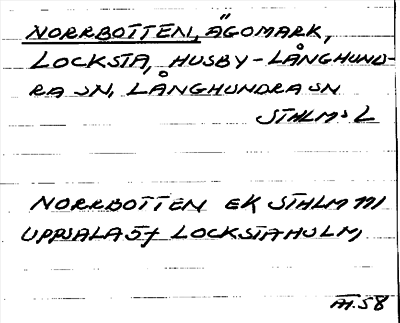 NORRBOTTEN, ÄGOMARK,
LOCKSTA, HUSBY-LÅNGHUND-
RA SN, LÅNGHUNDRA SN
STHLMS L
NORRBOTTEN EK STHLM 111
UPPSALA 57 LOCKSTAHOLM,
58